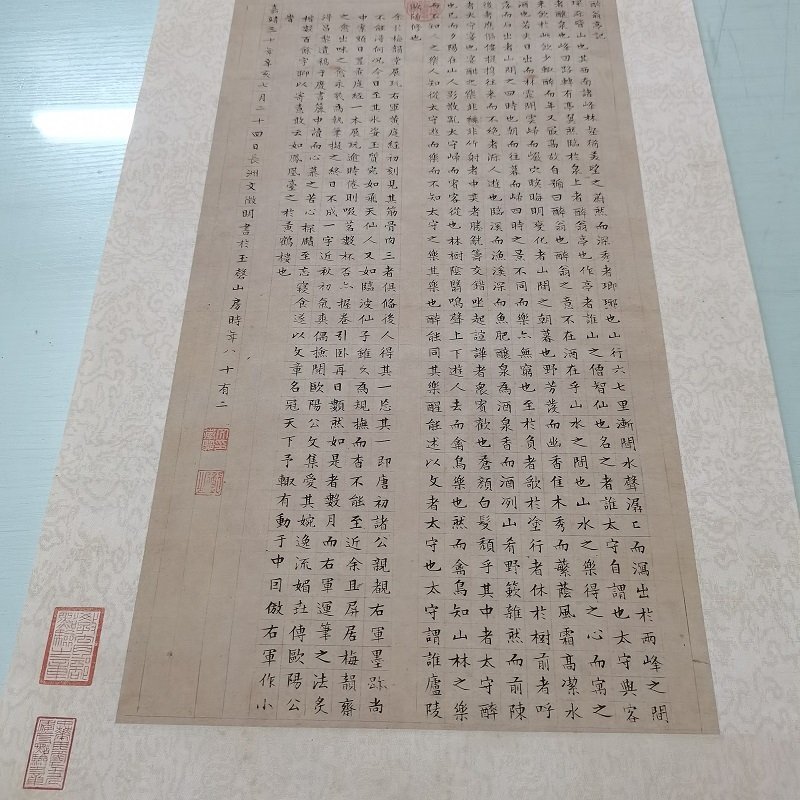 醉翁亭記
環滁皆山也其西南諸峰林壑尤美望之蔚然而深秀者瑯琊也山行六七里漸聞水聲潺〻而瀉出於兩峰之間
者釀泉也峰回路轉有亭翼然臨於泉上者醉翁亭也作亭者誰山之僧智仙也名之者誰太守自謂也太守與客
來飲於此飲少輒醉而年又最高故自號曰醉翁也醉翁之意不在酒在乎山水之間也山水之樂得之心而寓之
酒也若夫日出而林霏開雲歸而巖穴暝晦明變化者山間之朝暮也野芳發而幽香佳木秀而繁蔭風霜高潔水
落而石出者山間之四時也朝而往暮而歸四時之景不同而樂亦無窮也至於負者歌於塗行者休於樹前者呼
後者應傴僂提攜往來而不絕者滁人遊也臨溪而漁溪深而魚肥釀泉為酒泉香而酒冽山肴野蔌雜然而前陳
者太守宴也宴酣之樂非絲非竹射者中奕者勝觥籌交錯坐起諠譁者衆賓歡也蒼顏白髮頹乎其中者太守醉
也已而夕陽在山人影散亂太守歸而賓客從也林樹陰翳鳴聲上下遊人去而禽鳥樂也然而禽鳥知山林之樂
而不知人之樂人知從太守遊而樂而不知太守之樂其樂也醉能同其樂醒能述以文者太守也太守謂誰廬陵
歐陽修也
余於梅韻齋展玩右軍黃庭經初刻見其筋骨肉三者俱備後人得其一忘其一即唐初諸公親覩右軍墨跡尚
不能得何況今日至其冰姿玉質宛如飛天仙人又如臨波仙子雖久為規撫而杳不能至近余且屏居梅韻齋
中案頭日置黃庭經一本展玩逾時倦則啜茗數杯否亦握卷引臥再日數然如是者數月而右軍運筆之法炙
之愈出味之愈永執筆擬之終日不成一字近秋初氣爽偶撿閱歐陽公文集愛其婉逸流媚傳歐陽公
得昌黎遺稿于廢書簏中讀而心慕之苦心探賾至忘寢食遂以文章名冠天下予輒有動于中因倣右軍作小
楷數百餘字聊以寄意敢云如鳳凰臺之於黃鶴樓也
嘉靖三十年辛亥七月二十四日長洲文徵明書於玉磬山房時年八十有二